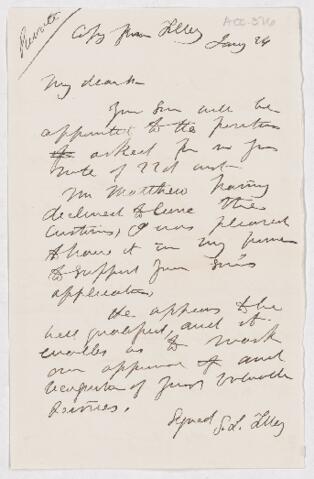 Private
Copy from Tilley
ACC 576
Jany 24
My dear
Your Son will be
appointed to the position
asked for in your
note of 22d inst
Mr Matthew having
declined to leave the
Customs, I was pleased
to have it in my power
to support your son's
application,
He appears to be
well qualified, and it
enables us to mark
our approval of and
recognition of your valuable
Services.
Signed S. L. Tilley